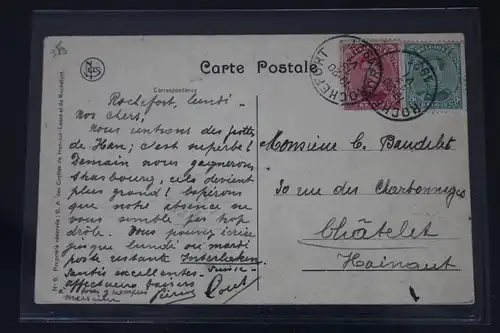 Carte Postale
Correspondance
Rochefort, lundi -
Nos chers,
Nous rentrons des grottes
de Han; c'est superbe!
Demain nous gagnerons
Strasbourg, cela devient
plus grand! Espérons
que notre absence ne
vous semble pas trop
drôle. Vous pouvez écrire
jusque lundi ou mardi
poste restante Interlaken
Suisse -
Santés excellentes -
affectueux baisers
Monsieur C. Baudelet
30 rue des Charbonnages
Châtelet
Hainaut
ROCHEFORT